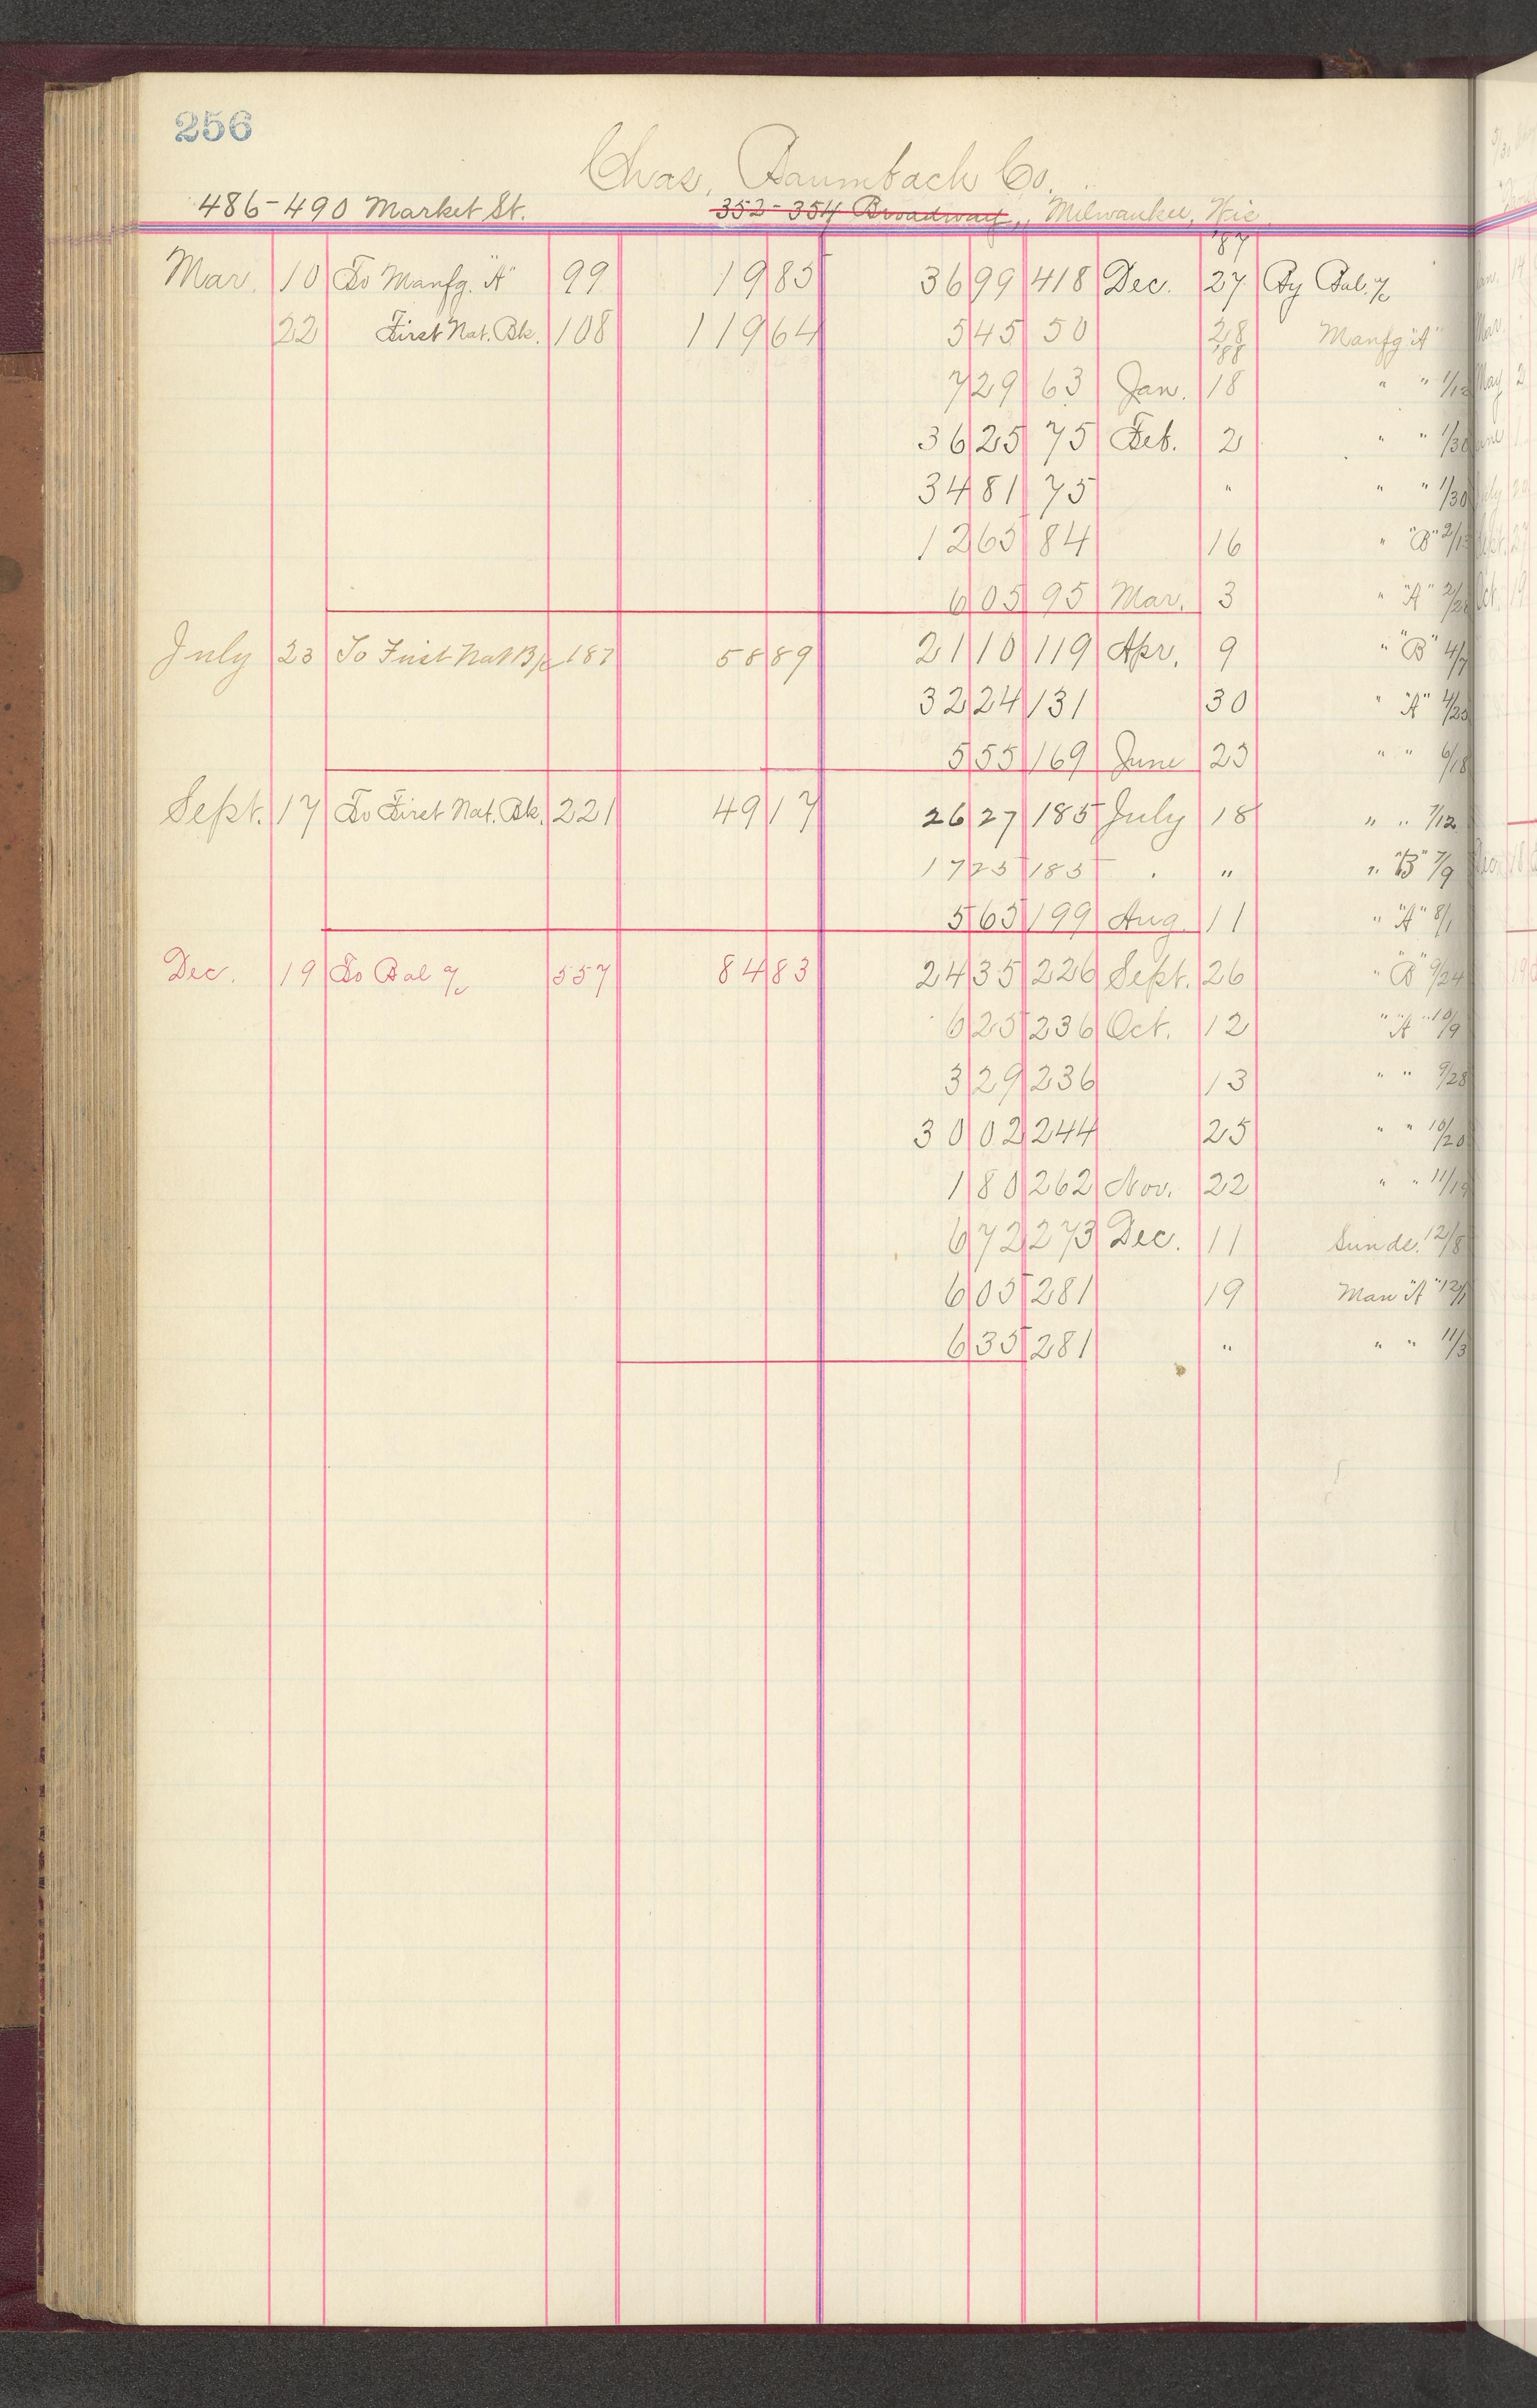 256
Chas. Baumbach Co.
486-490 Market St. 352-354 Broadway, Milwaukee, Wis.
'87
Mar. 10 To Manfg. "A" 99 19 85 36 99 418 Dec. 27 By Bal. a/c
22 First Nat. Bk. 108 119 64 5 45 50 28 Manfg "A"
'88
7 29 63 Jan. 18 " " 1/12
36 25 75 Feb. 2 " " 1/30
34 81 75 " " " 1/30
12 65 84 16 " "B" 2/13
6 05 95 Mar. 3 " "A" 2/28
July 23 To First Nat Bk 187 58 89 21 10 119 Apr. 9 " "B" 4/7
32 24 131 30 " "A" 4/25
5 55 169 June 25 " " 6/18
Sept. 17 To First Nat. Bk. 221 49 17 26 27 185 July 18 " " 7/12
17 25 185 " " " "B" 7/9
5 65 199 Aug. 11 " "A" 8/1
Dec. 19 To Bal a/c 557 84 83 24 35 226 Sept. 26 " "B" 9/24
6 25 236 Oct. 12 " "A" 10/9
3 29 236 13 " " 9/28
30 02 244 25 " " 10/20
1 80 262 Nov. 22 " " 11/19
6 72 273 Dec. 11 Sunds. 12/8
6 05 281 19 Man "A" 12/1
6 35 281 " " " 11/3